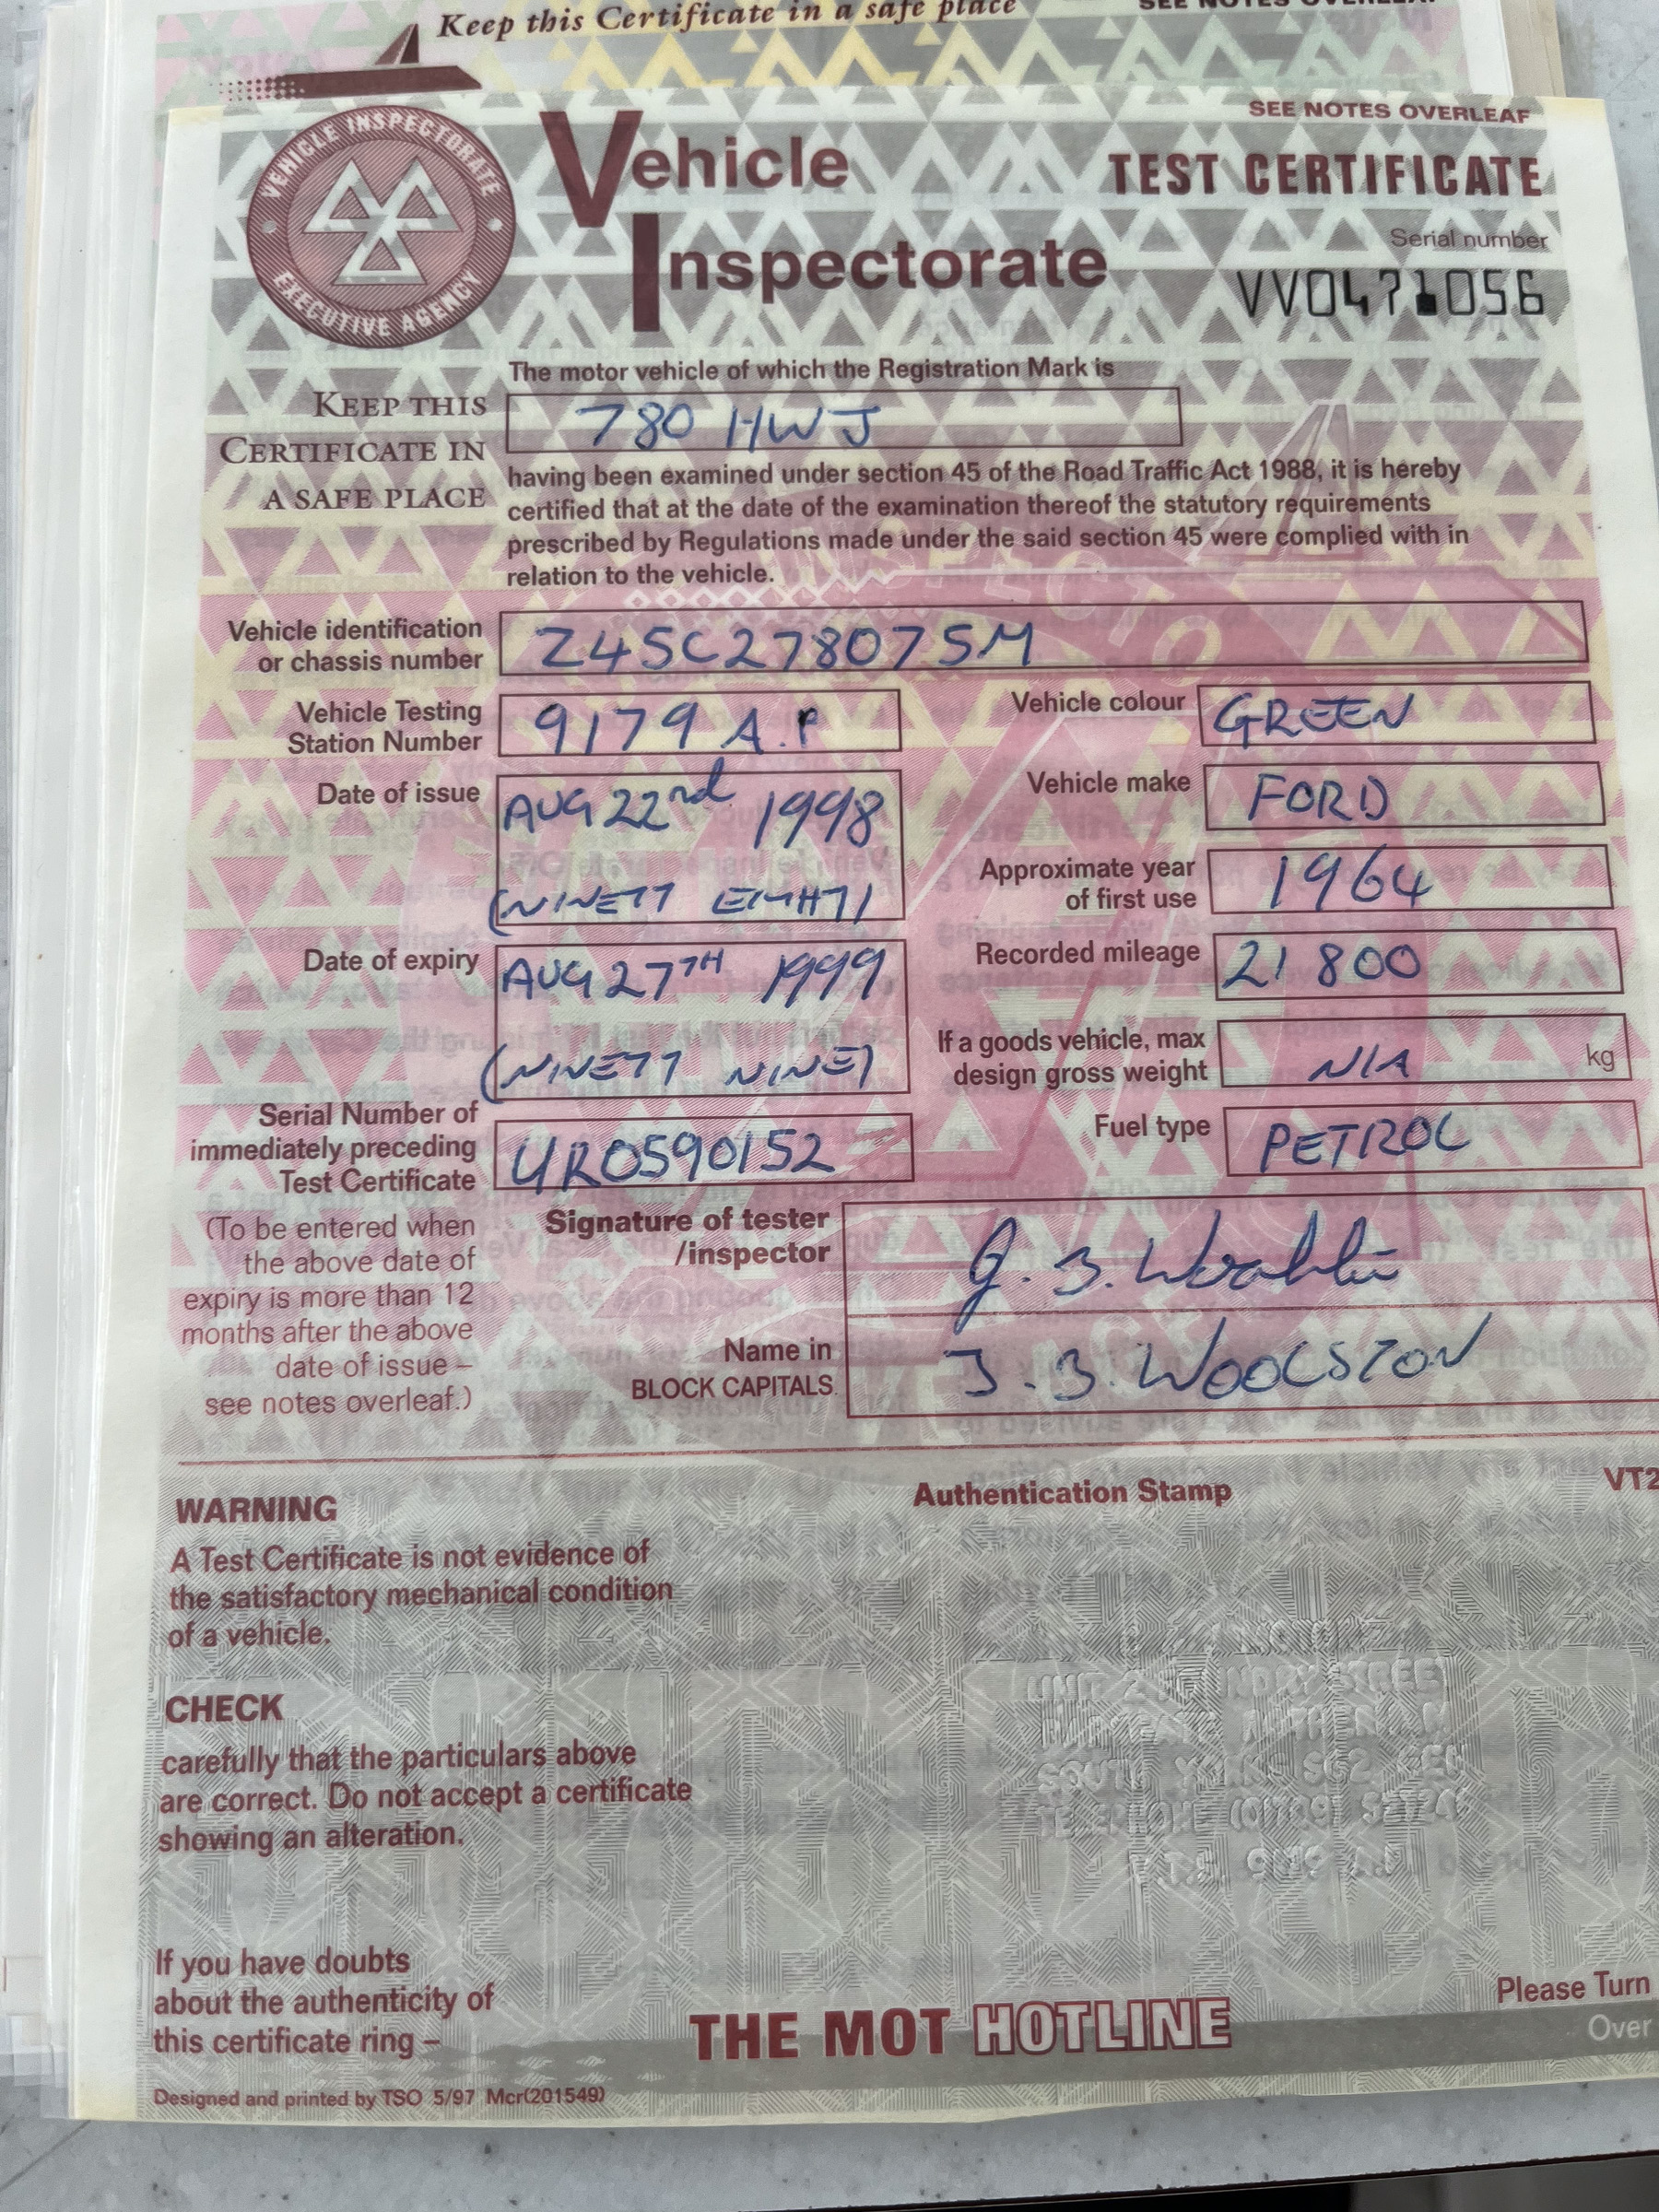 Keep this Certificate in a safe place
SEE NOTES OVERLEAF
VEHICLE INSPECTORATE
EXECUTIVE AGENCY
Vehicle
Inspectorate
SEE NOTES OVERLEAF
TEST CERTIFICATE
Serial number
VV0471056
The motor vehicle of which the Registration Mark is
KEEP THIS
CERTIFICATE IN
A SAFE PLACE
780 HWJ
having been examined under section 45 of the Road Traffic Act 1988, it is hereby
certified that at the date of the examination thereof the statutory requirements
prescribed by Regulations made under the said section 45 were complied with in
relation to the vehicle.
Vehicle identification
or chassis number
Z45C278075M
Vehicle Testing
Station Number
9179 A.P
Vehicle colour
GREEN
Date of issue
AUG 22nd 1998
(NINETY EIGHT)
Vehicle make
FORD
Approximate year
of first use
1964
Date of expiry
AUG 27TH 1999
(NINETY NINE)
Recorded mileage
21 800
If a goods vehicle, max
design gross weight
N/A
kg
Serial Number of
immediately preceding
Test Certificate
UR0590152
Fuel type
PETROL
(To be entered when
the above date of
expiry is more than 12
months after the above
date of issue –
see notes overleaf.)
Signature of tester
/inspector
Name in
BLOCK CAPITALS
J. B. WOOLSTON
WARNING
A Test Certificate is not evidence of
the satisfactory mechanical condition
of a vehicle.
Authentication Stamp
VT2
CHECK
carefully that the particulars above
are correct. Do not accept a certificate
showing an alteration.
UNIT 2 STREET
SOUTH
TELEPHONE (01709)
If you have doubts
about the authenticity of
this certificate ring –
THE MOT HOTLINE
Please Turn
Over
Designed and printed by TSO 5/97 Mcr(201549)